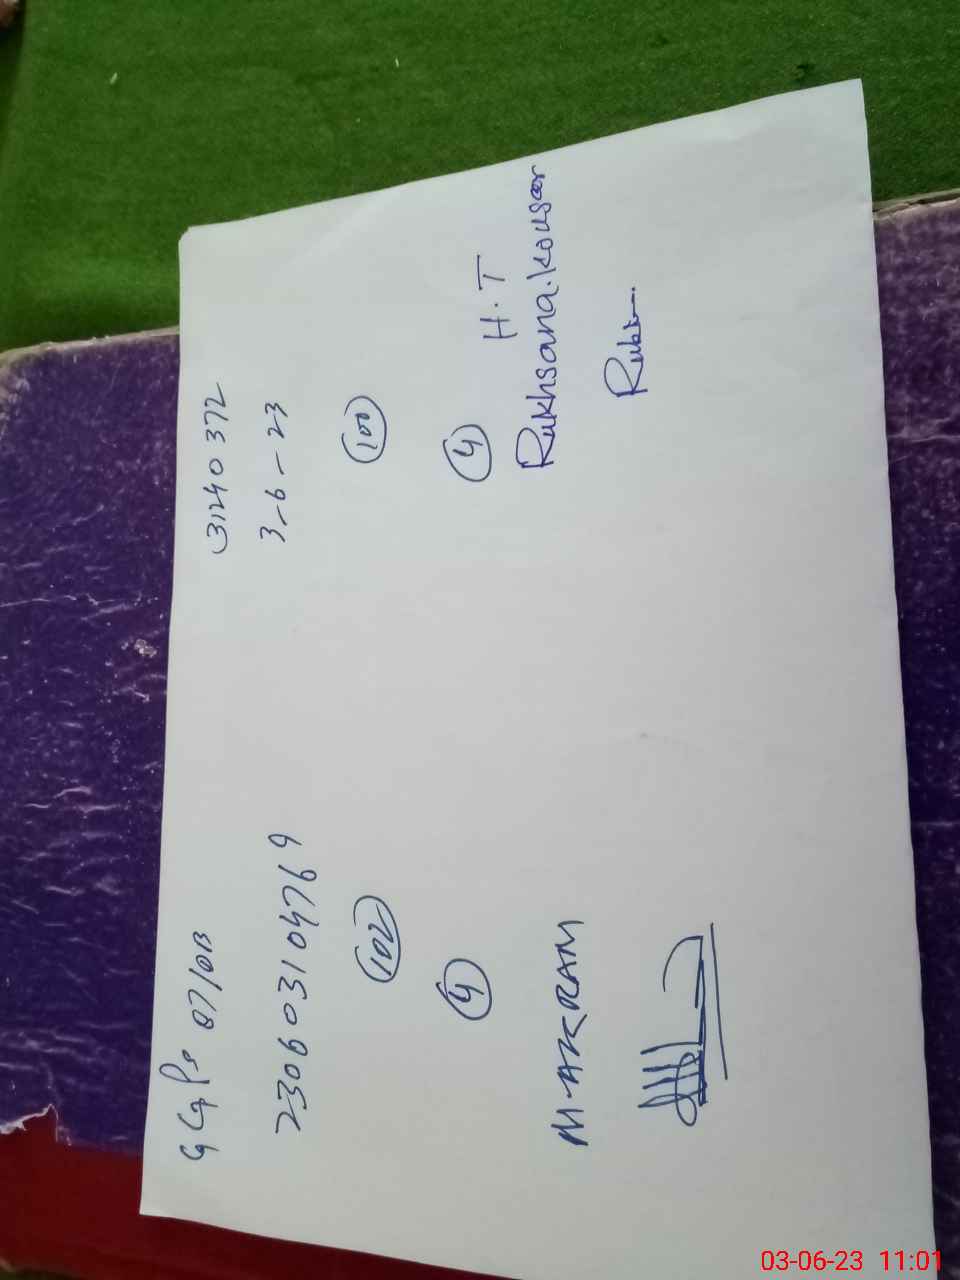 GGPS 07/0B 31240372
230603104769 3-6-23
102 100
4 4
H.T
M-AKRAM Rukhsana.Kousar
03-06-23 11:01